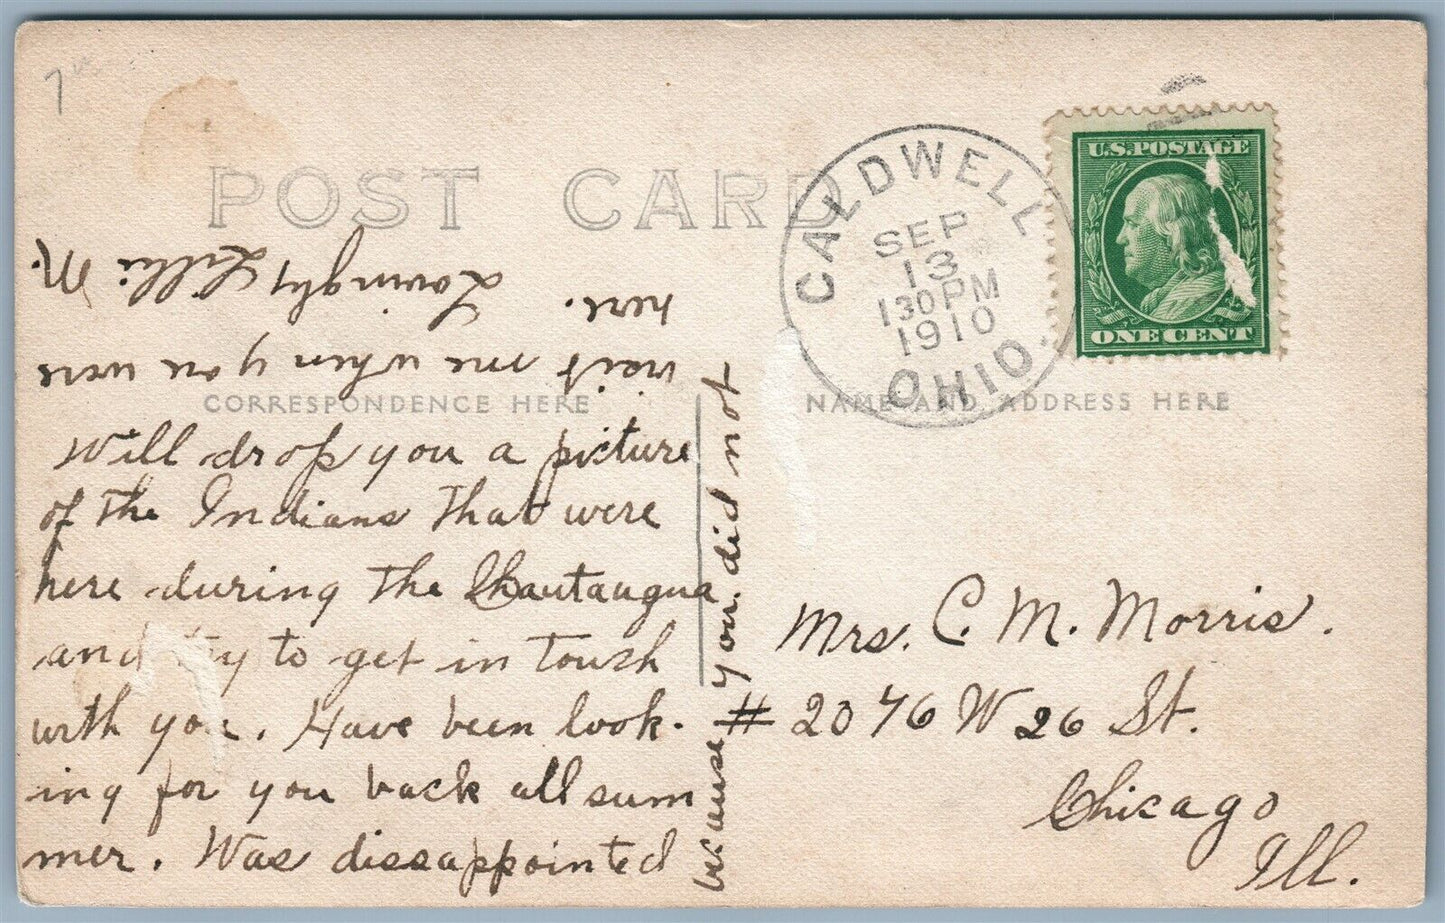 7
POST CARD
CALDWELL
SEP
13
130 PM
1910
OHIO.
U.S. POSTAGE
ONE CENT
CORRESPONDENCE HERE
NAME AND ADDRESS HERE
Will drop you a picture
of the Indians that were
here during the Chautauqua
and try to get in touch
with you. Have been look-
ing for you back all sum
mer. Was dissappointed
because you did not
visit me when you were
here. Lovingly Lillie M.
Mrs. C. M. Morris.
# 2076 W 26 St.
Chicago
Ill.